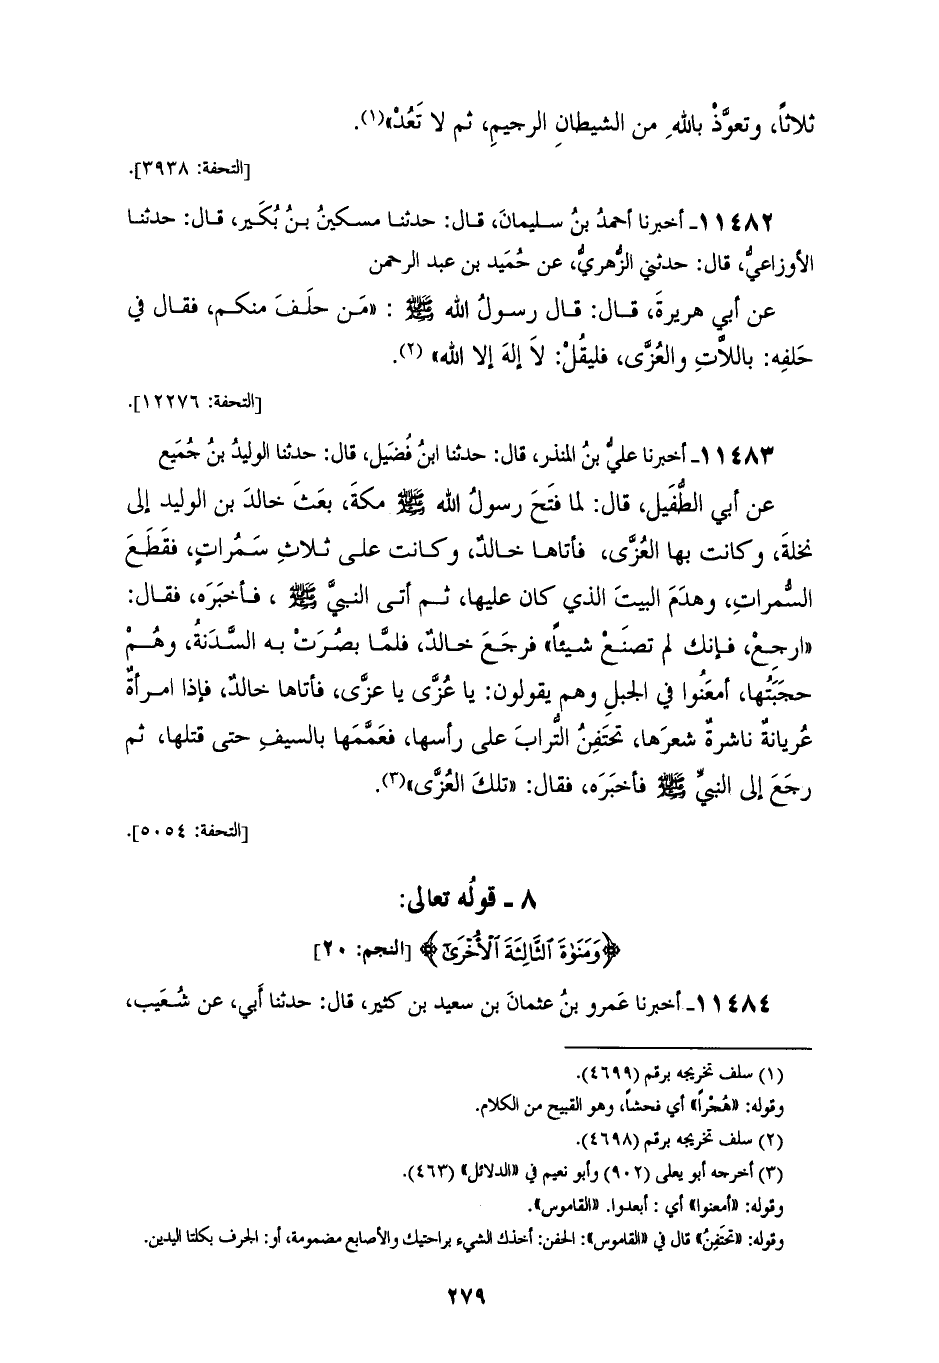 ثلاثاً، وتعوَّذْ باللهِ من الشيطانِ الرجيمِ، ثم لا تَعُدْ»(١).
[التحفة: ٣٩٣٨].
١١٤٨٢ـ أخبرنا أحمدُ بنُ سليمانَ، قال: حدثنا مسكينُ بنُ بُكَير، قال: حدثنا
الأوزاعيُّ، قال: حدثني الزُّهريُّ، عن حُمَيد بن عبد الرحمن
عن أبي هريرةَ، قال: قال رسولُ الله ﷺ : «مَن حلَفَ منكم، فقال في
حَلفِه: باللاَّتِ والعُزَّى، فليقُلْ: لاَ إلهَ إلا الله» (٢).
[التحفة: ١٢٢٧٦].
١١٤٨٣ـ أخبرنا عليُّ بنُ المنذر، قال: حدثنا ابنُ فُضَيل، قال: حدثنا الوليدُ بنُ جُمَيع
عن أبي الطُّفَيل، قال: لما فتَحَ رسولُ الله ﷺ مكةَ، بعَثَ خالدَ بن الوليد إلى
نخلةَ، وكانت بها العُزَّى، فأتاها خالدٌ، وكانت على ثلاثِ سَمُراتٍ، فقَطَعَ
السُّمراتِ، وهدَمَ البيتَ الذي كان عليها، ثم أتى النبيَّ ﷺ ، فأخبَرَه، فقال:
«ارجِعْ، فإنك لم تصنَعْ شيئاً» فرجَعَ خالدٌ، فلمَّا بصُرَتْ به السَّدَنةُ، وهُمْ
حجَبَتُها، أمعَنُوا في الجبلِ وهم يقولون: يا عُزَّى يا عزَّى، فأتاها خالدٌ، فإذا امرأةٌ
عُريانةٌ ناشرةٌ شعرَها، تحتَفِنُ التُّرابَ على رأسها، فعَمَّمَها بالسيفِ حتى قتلها، ثم
رجَعَ إلى النبيِّ ﷺ فأخبَرَه، فقال: «تلكَ العُزَّى»(٣).
[التحفة: ٥٠٥٤].
٨ ـ قولُه تعالى:
﴿وَمَنَوٰةَ ٱلثَّالِثَةَ ٱلْأُخْرَىٰٓ﴾ [النجم: ٢٠]
١١٤٨٤ـ أخبرنا عَمرو بنُ عثمانَ بن سعيد بن كثير، قال: حدثنا أَبي، عن شُعَيب،
(١) سلف تخريجه برقم (٤٦٩٩).
وقوله: «هُجْراً» أي فحشاً، وهو القبيح من الكلام.
(٢) سلف تخريجه برقم (٤٦٩٨).
(٣) أخرجه أبو يعلى (٩٠٢) وأبو نعيم في «الدلائل» (٤٦٣).
وقوله: «أمعنوا» أي : أبعدوا. «القاموس».
وقوله: «تحتَفِنُ» قال في «القاموس»: الحفن: أخذك الشيء براحتيك والأصابع مضمومة، أو: الجرف بكلتا اليدين.
٢٧٩